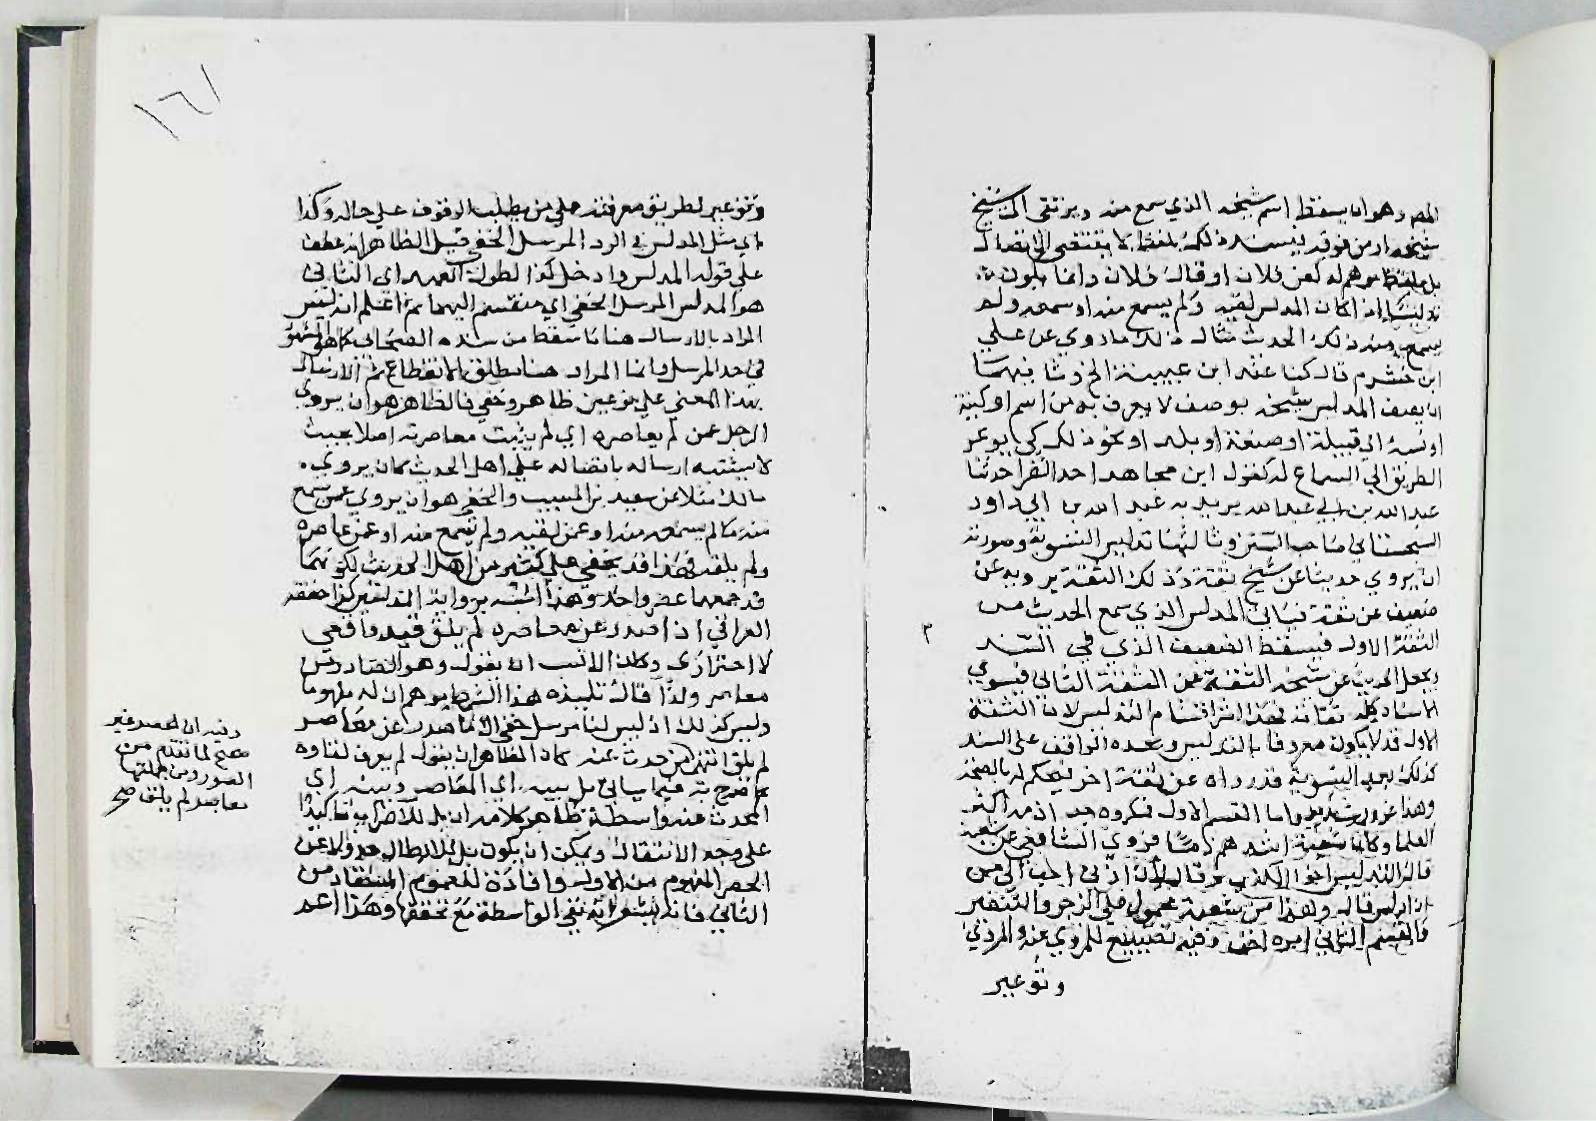 وهو ان يسقط اسم شيخه الذي سمع منه ويرتقي الى شيخ
شيخه او من فوقه فيسند ذلك بلفظ لا يقتضي الاتصال
بل بلفظ موهم له كعن فلان او قال فلان وانما يكون
تدليسا اذا كان المدلس لقيه ولم يسمع منه او سمعه ولم
يسمع منه ذلك الحديث مثال ذلك ما روي عن علي
ابن خشرم قال كنا عند ابن عيينة الخ وثانيهما
ان يصف المدلس شيخه بوصف لا يعرف به من اسم او كنية
او نسبة الى قبيلة او صنعة او بلد او نحو ذلك كي يوعر
الطريق الى السماع له كقول ابن مجاهد احد القراء حدثنا
عبد الله بن ابي عبد الله يريد به عبد الله بن ابي داود
السجستاني صاحب السنن وثالثها تدليس التسوية وصورته
ان يروي حديثا عن شيخ ثقة وذلك الثقة يرويه عن
ضعيف عن ثقة فياتي المدلس الذي سمع الحديث من
الثقة الاول فيسقط الضعيف الذي في السند
ويجعل الحديث عن شيخه الثقة عن الثقة الثاني فيستوي
الاسناد كله ثقات وهذا اشر اقسام التدليس لان الثقة
الاول قد لا يكون معروفا بالتدليس ويجده الواقف على السند
كذلك بعد التسوية قد رواه عن ثقة اخر فيحكم له بالصحة
وهذا غرور شديد واما القسم الاول فمكروه جدا ذمه اكثر
العلما وكان شعبة اشدهم ذما فروى الشافعي عن شعبة
قال التدليس اخو الكذب وقال لان ازني احب الي من
ان ادلس قال وهذا من شعبة محمول على الزجر والتنفير
والقسم الثاني امره اخف وفيه تضييع للمروي عنه والمروي
وتوعير
٣
١٦١
وتوعير لطريق معرفته على من يطلب الوقوف على حاله وكذا
اي مثل المدلس في الرد المرسل الخفي قيل الظاهر انه عطف
على قوله المدلس وادخل كذا لطول العهد اي الثاني
هو المدلس المرسل الخفي اي منقسم اليهما ثم اعلم انه ليس
المراد بالارسال هنا ما سقط من سنده الصحابي كما هو المشهور
في حد المرسل وانما المراد هنا مطلق الانقطاع ثم الارسال
بهذا المعنى على نوعين ظاهر وخفي فالظاهر هو ان يروي
الرجل عمن لم يعاصره اي لم يثبت معاصرته اصلا بحيث
لا يشتبه ارساله باتصاله على اهل الحديث كان يروي
مالك مثلا عن سعيد بن المسيب والخفي هو ان يروي عمن سمع
منه ما لم يسمعه منه او عمن لقيه ولم يسمع منه او عمن عاصره
ولم يلقه فهذا قد يخفى على كثير من اهل الحديث لكونهما
قد جمعهما عصر واحد وهذا اشبه برواية المدلسين كذا حققه
العراقي اذا صدر عن معاصره لم يلق قيد واقعي
لا احترازي وكان الانسب ان يقول وهو الصادر من
معاصر ولذا قال تلميذه هذا الشرط يوهم ان له مفهوما
وليس كذلك اذ ليس لنا مرسل خفي الا ما صدر عن معاصر
لم يلق انتهى من حدث عنه كان الظاهر ان يقول لم يعرف لقاوه
كما صرح به فيما ياتي بل بينه اي المعاصر وبينه اي
المحدث عنه واسطة ظاهر كلامه ان بل للاضراب تاكيدا
على وجه الانتقال ويمكن ان يكون بل للابطال عدولا عن
الحصر المفهوم من الاول وافادة للعموم المستفاد من
الثاني فانه يشمل نفي الواسطة مع تحققها وهذا اعم
وفيه ان الحصر غير
صحيح لما تقدم من
الصور ومن جملتها
معاصر لم يلق صح